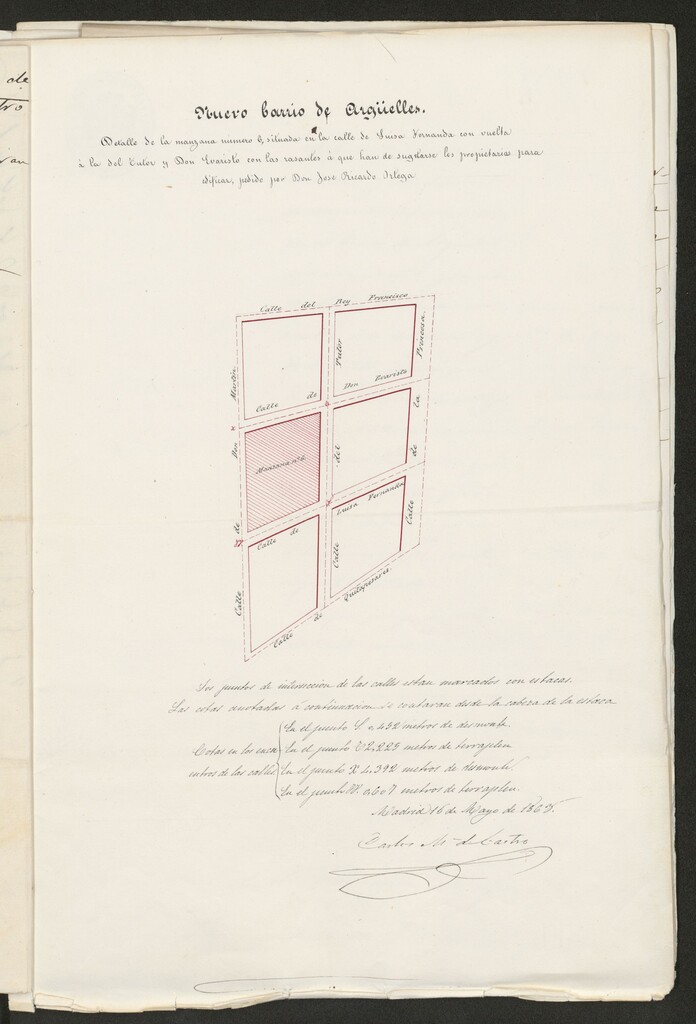 de
Nuevo barrio de Argüelles.
Detalle de la manzana numero 6, situada en la calle de Luisa Fernanda con vuelta
á la del Tutor y Don Evaristo con las rasantes á que han de sugetarse los propietarios para
edificar, pedido por Don Jose Ricardo Ortega
Calle del Rey Francisco
Calle de Don Martin
Calle del Tutor
Calle de la Princesa
Calle de Don Evaristo
Manzana nº 6
Calle de Luisa Fernanda
Calle de Quitapesares
Los puntos de interseccion de las calles estan marcados con estacas.
Las cotas anotadas á continuacion se contaran desde la cabeza de la estaca
Cotas en los encuentros de las calles
En el punto S. 0,432 metros de desmonte.
En el punto V 2,223 metros de terraplen
En el punto X 4,392 metros de desmonte
En el punto 0,607 metros de terraplen.
Madrid 16 de Mayo de 1865.
Carlos Mª de Castro